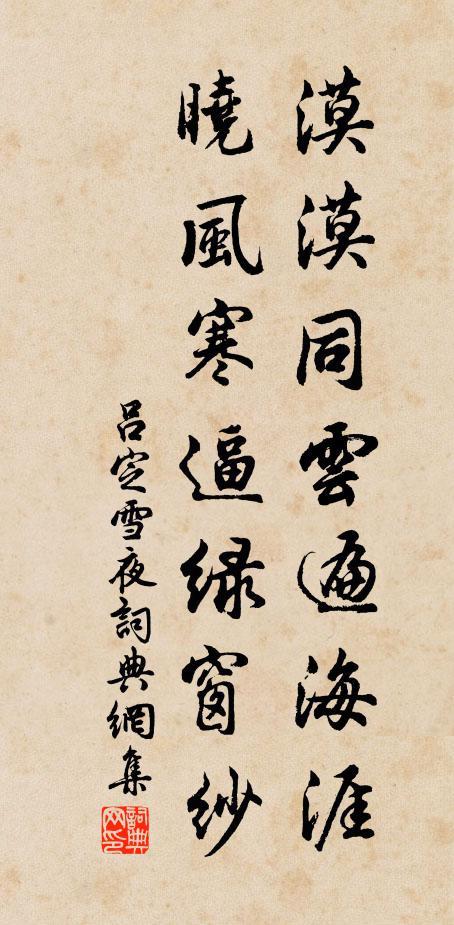 漠漠同雲遍海涯
曉風寒逼緑窗紗
吕定雪夜詞典網集
詞典网印